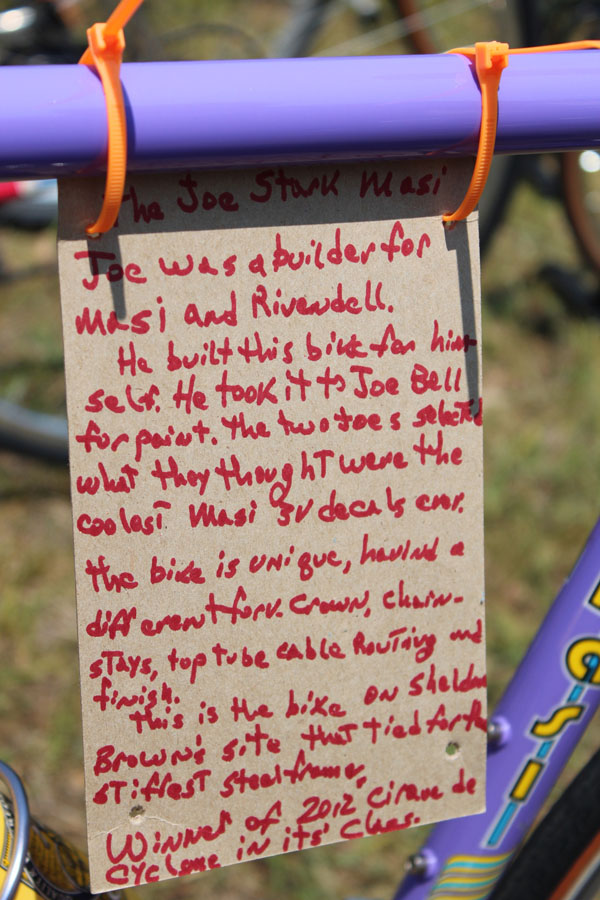 The Joe Stark Masi
Joe was a builder for
Masi and Rivendell.
He built this bike for him
self. He took it to Joe Bell
for paint. The two Joes selected
what they thought were the
coolest Masi 3V decals ever.
The bike is unique, having a
different fork crown, chain-
stays, top tube cable Routing and
finish.
This is the bike on Sheldon
Brown's site that tied for the
stiffest steel frame.
Winner of 2012 Cirque de
Cyclisme in its' Class.